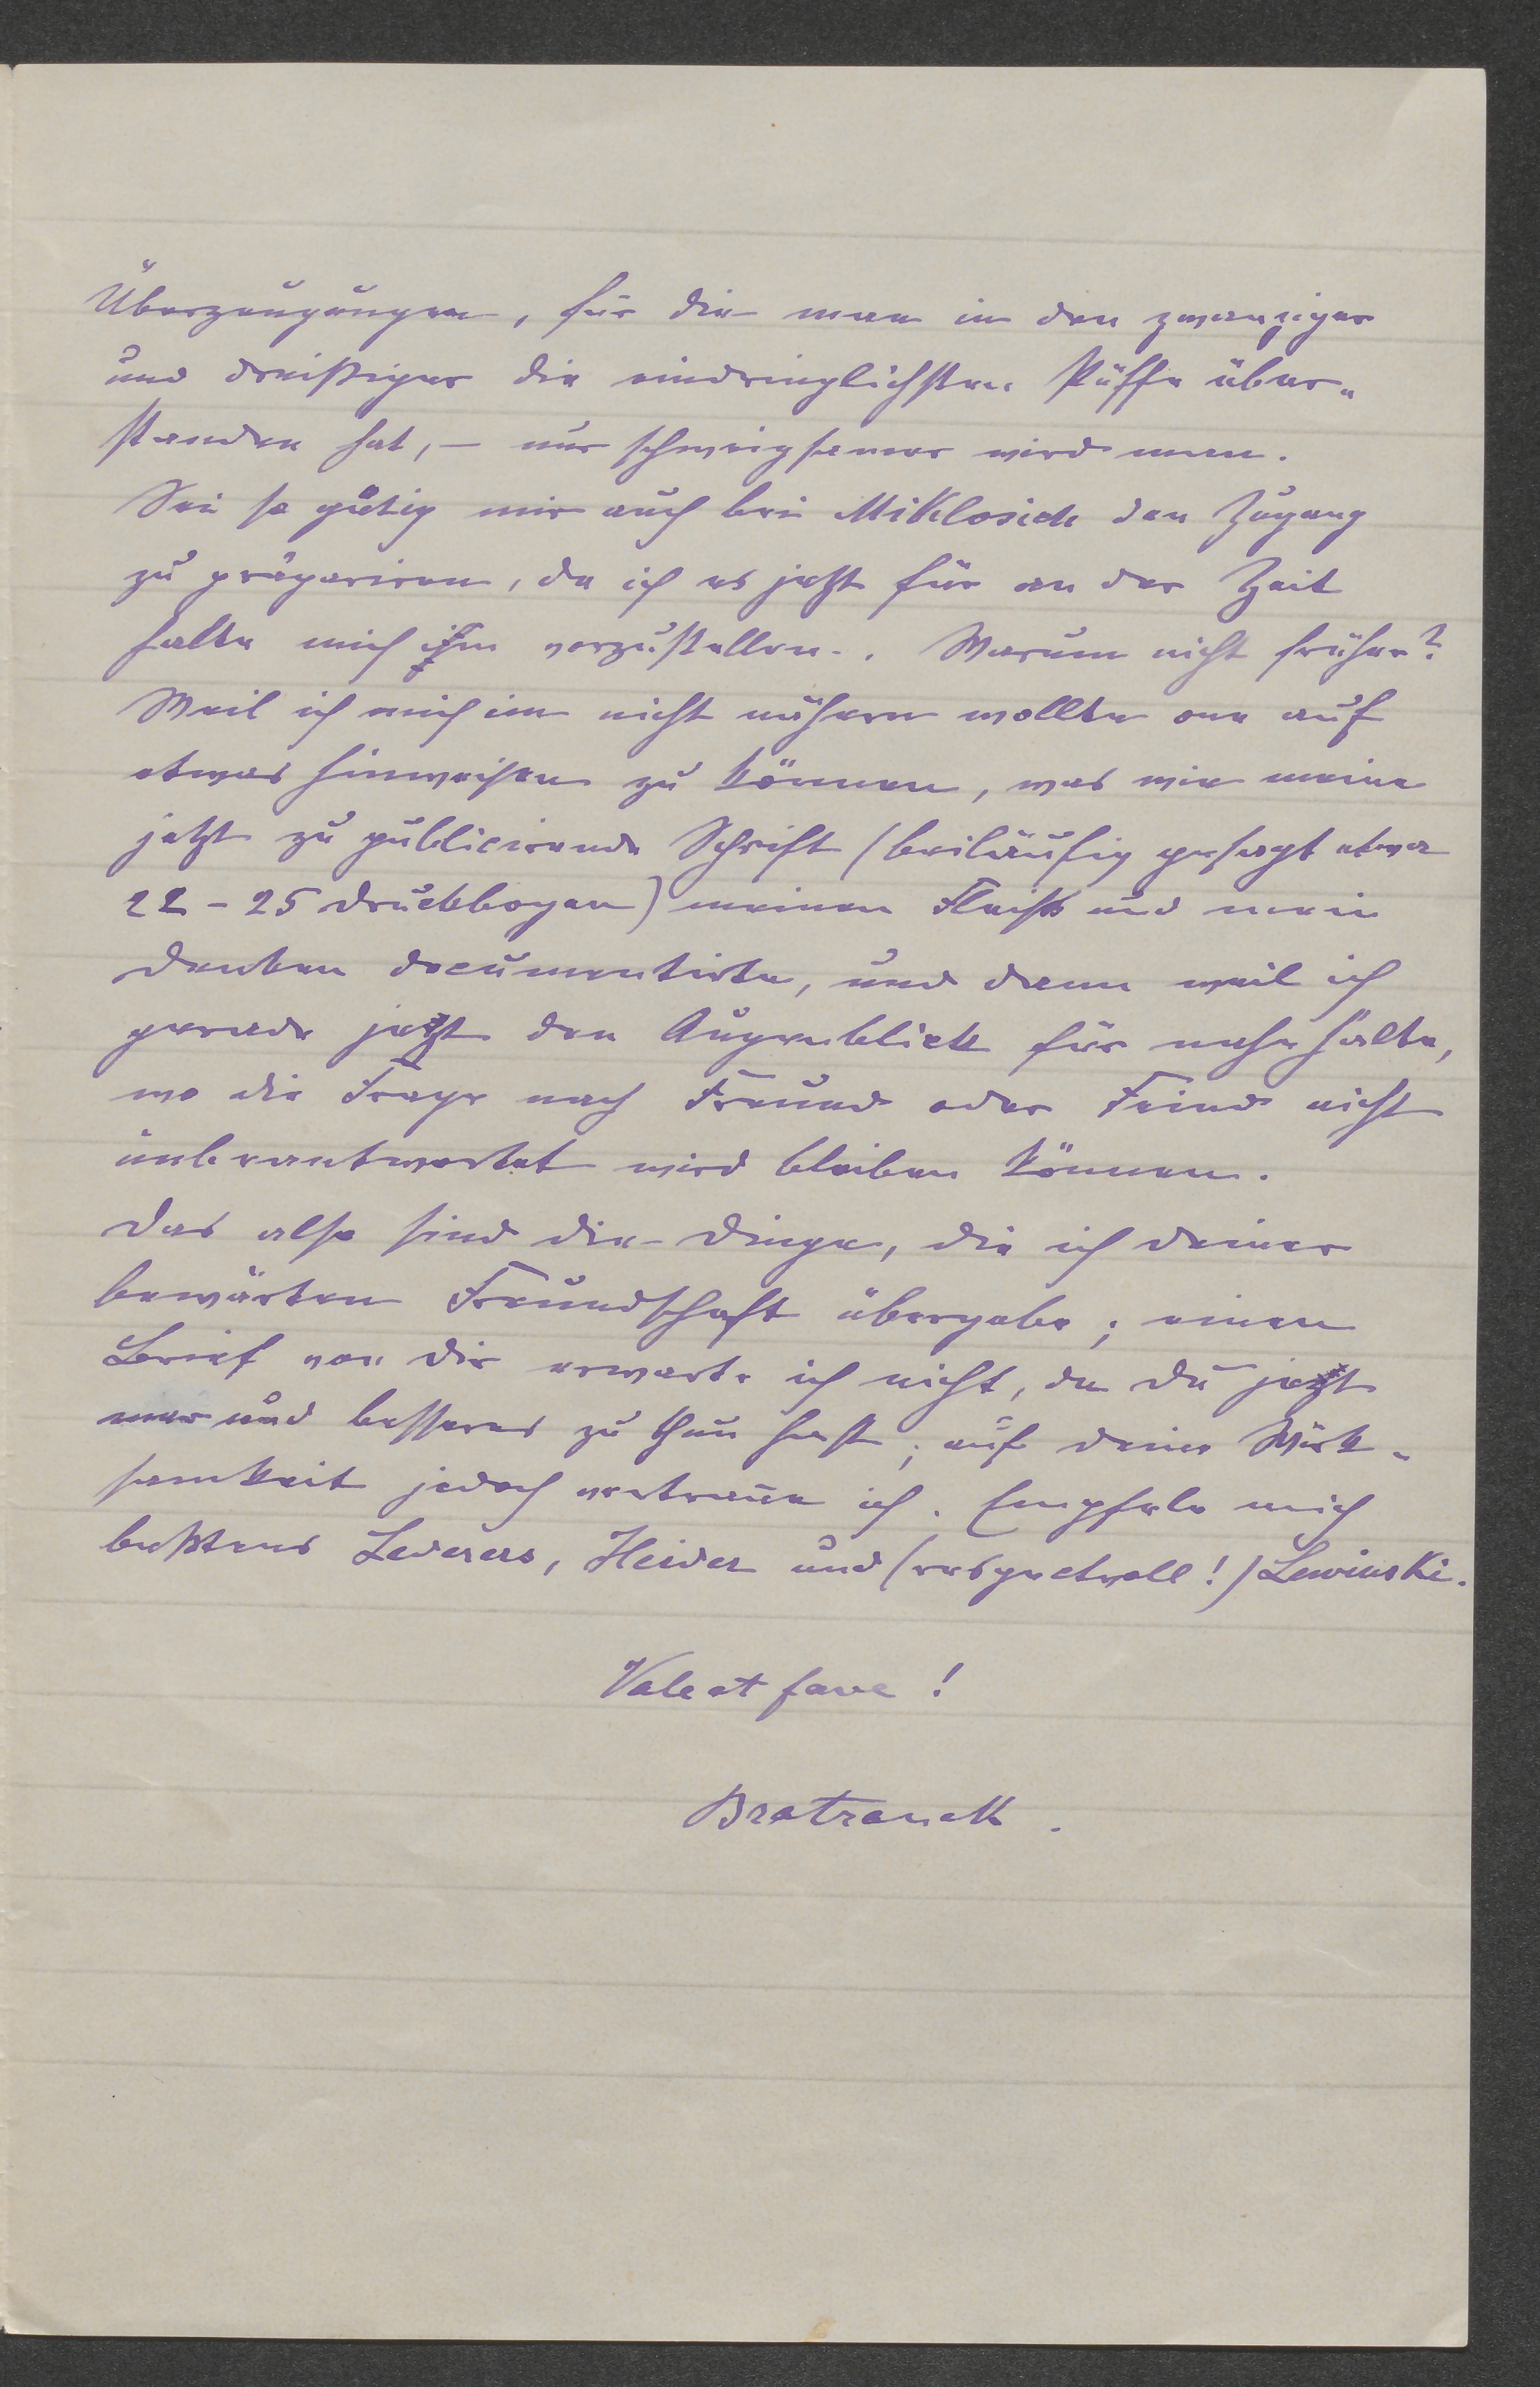 Überzeugungen, für die man in den zwanziger
und dreißiger die eindringlichsten Püffe über-
standen hat, – nur schweigsamer wird man.
Sei so gütig mir auch bei Miklosich den Zugang
zu präpariren, da ich es jetzt für an der Zeit
halte mich im vorzustellen. Warum nicht früher?
Weil ich mich im nicht nähern wollte one auf
etwas hinweisen zu können, was wie meine
jetzt zu publicirende Schrift (beiläufig gesagt etwa
22 – 25 Druckbogen) meinen Fleiß und mein
Denken documentirte, und dann weil ich
gerade jetzt den Augenblick für nahe halte,
wo die Frage nach Freund oder Feind nicht
unbeantwortet wird bleiben können.
Das also sind die Dinge, die ich deiner
bewärten Freundschaft übergebe; einen
Brief von dir erwarte ich nicht, da du jetzt
mer und besseres zu thun hast; auf deine Wirk-
samkeit jedoch vertraue ich. Empfele mich
bestens Lederers, Heider und (respectvoll!) Lewinski.
Vale et fave!
Bratranek.